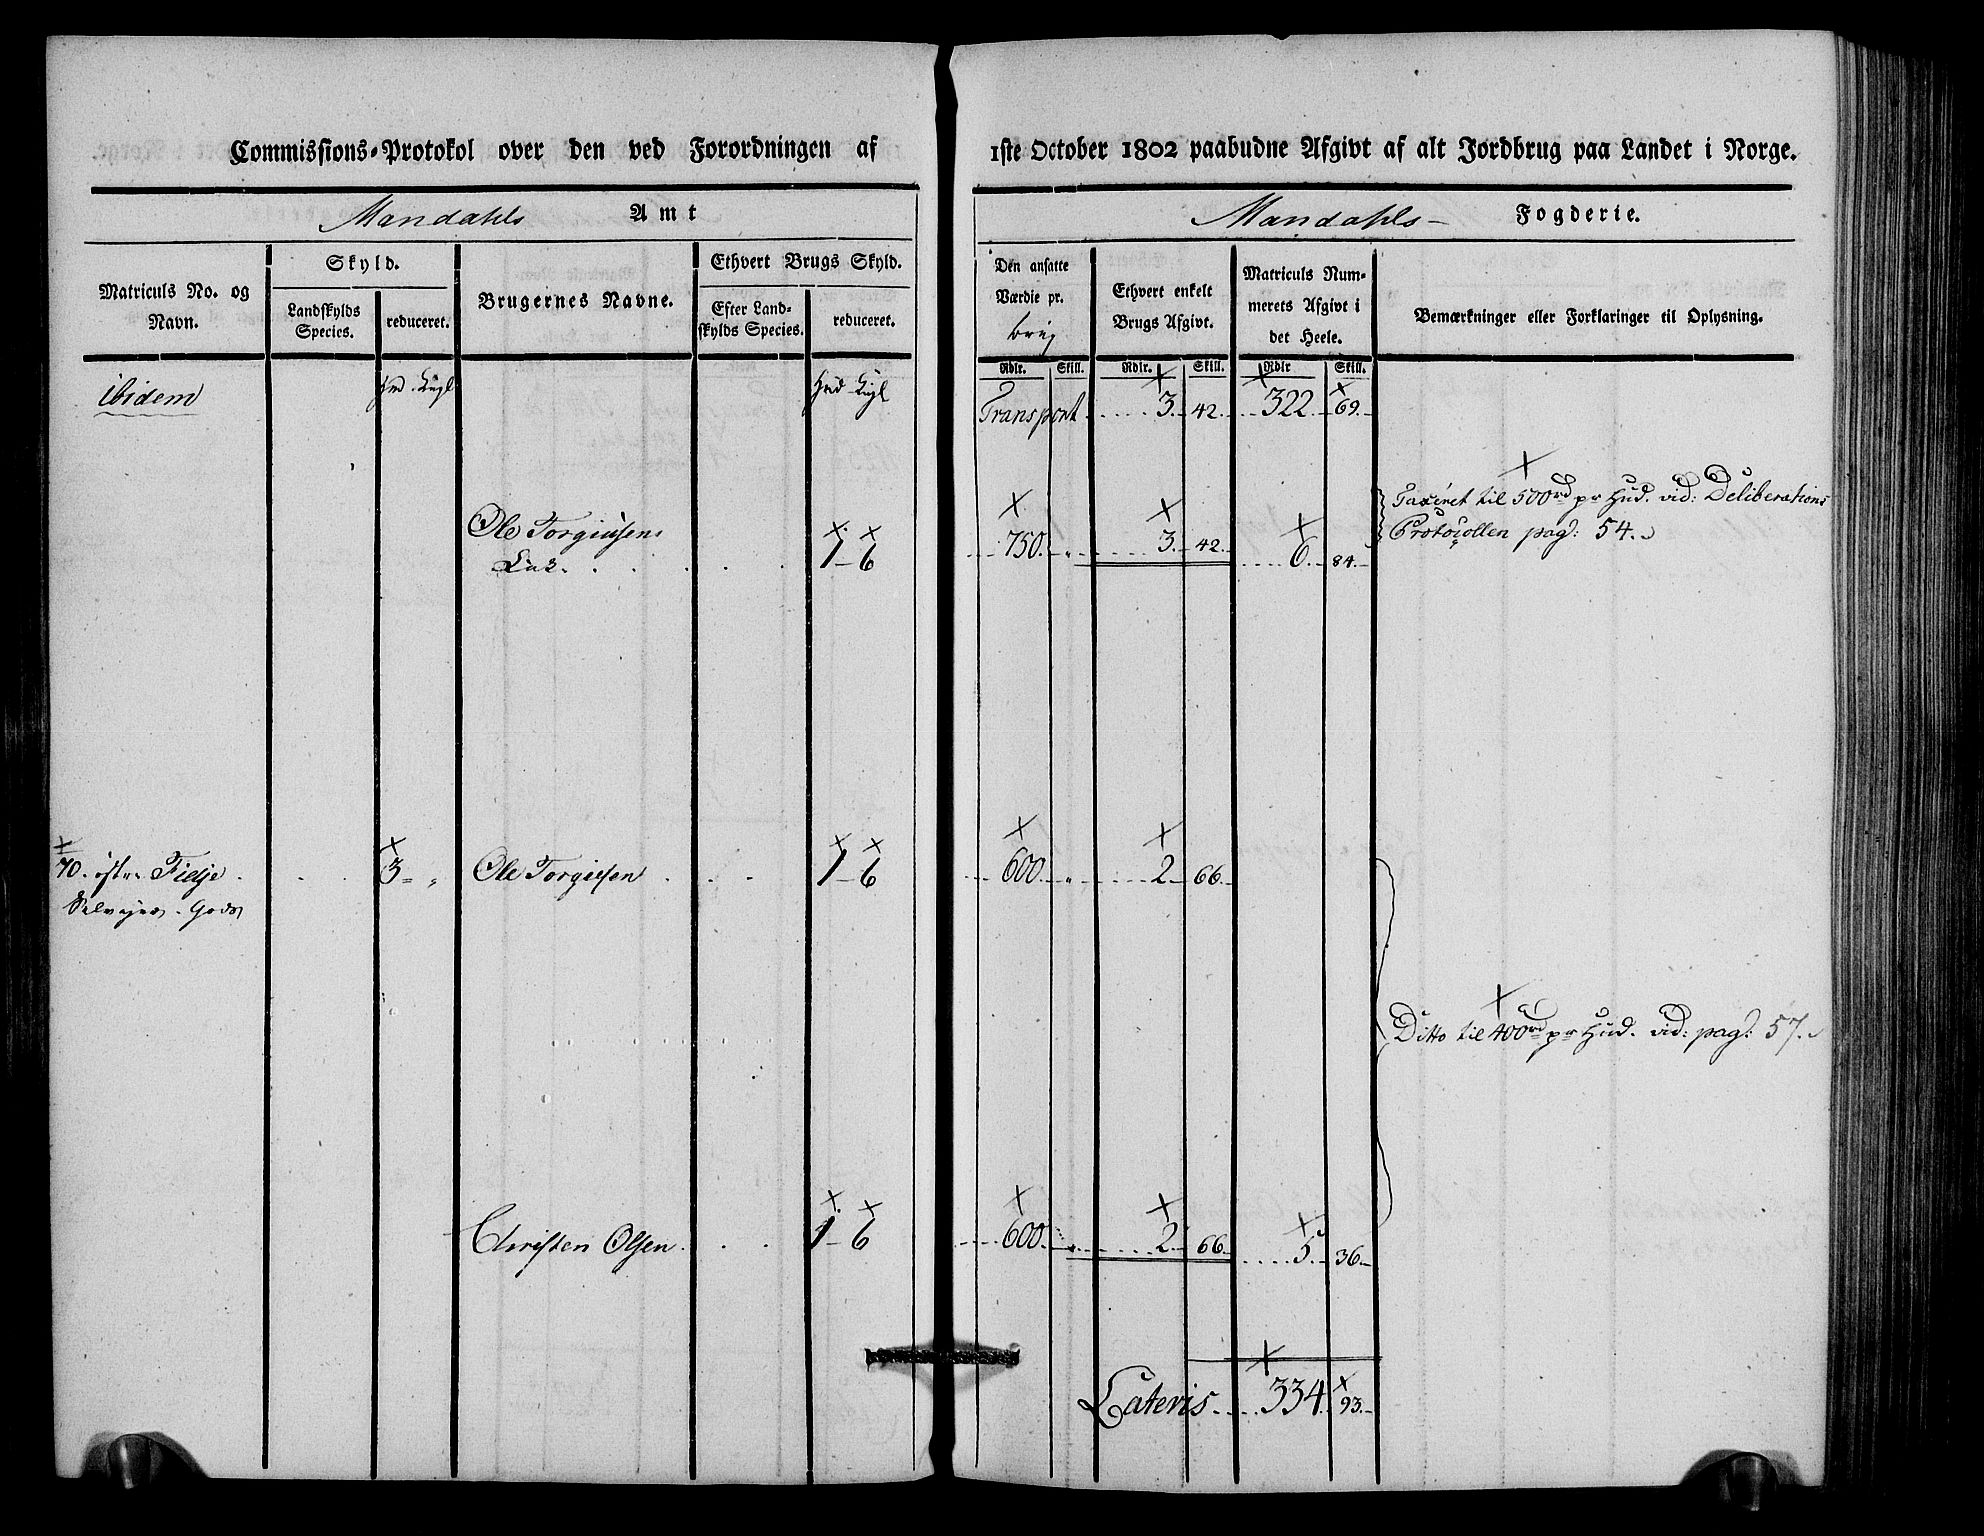 Commissions-Protokol over den ved Forordningen af 1ste October 1802 paabudne Afgivt af alt Jordbrug paa Landet i Norge.
Mandahls Amt
Mandahls Fogderie.
Matriculs No. og Navn.
Skyld.
Landskylds Species.
reduceret.
Brugernes Navne.
Ethvert Brugs Skyld.
Efter Landskylds Species.
reduceret.
Den ansatte Værdie pr.
Ethvert enkelt Brugs Afgivt.
Matriculs Nummerets Afgivt i det Heele.
Bemærkninger eller Forklaringer til Oplysning.
Rdlr. Skill. Rdlr. Skill. Rdlr Skill.
ibidem
Transport 3. 42. 322. 69.
Ole
1 - 6 750. 3. 42. 6. 84.
Taxeret til 500rd pr Hud. vid: Deliberations
Protocollen pag: 54.
70. Fielje 3 Ole Torgiesen 1 - 6 600. 2. 66.
Gods
Ditto til 400rd pr Hud. vid: pag: 57.
Christen Olsen 1 - 6 600. 2. 66. 5. 36.
Lateris 334. 93.